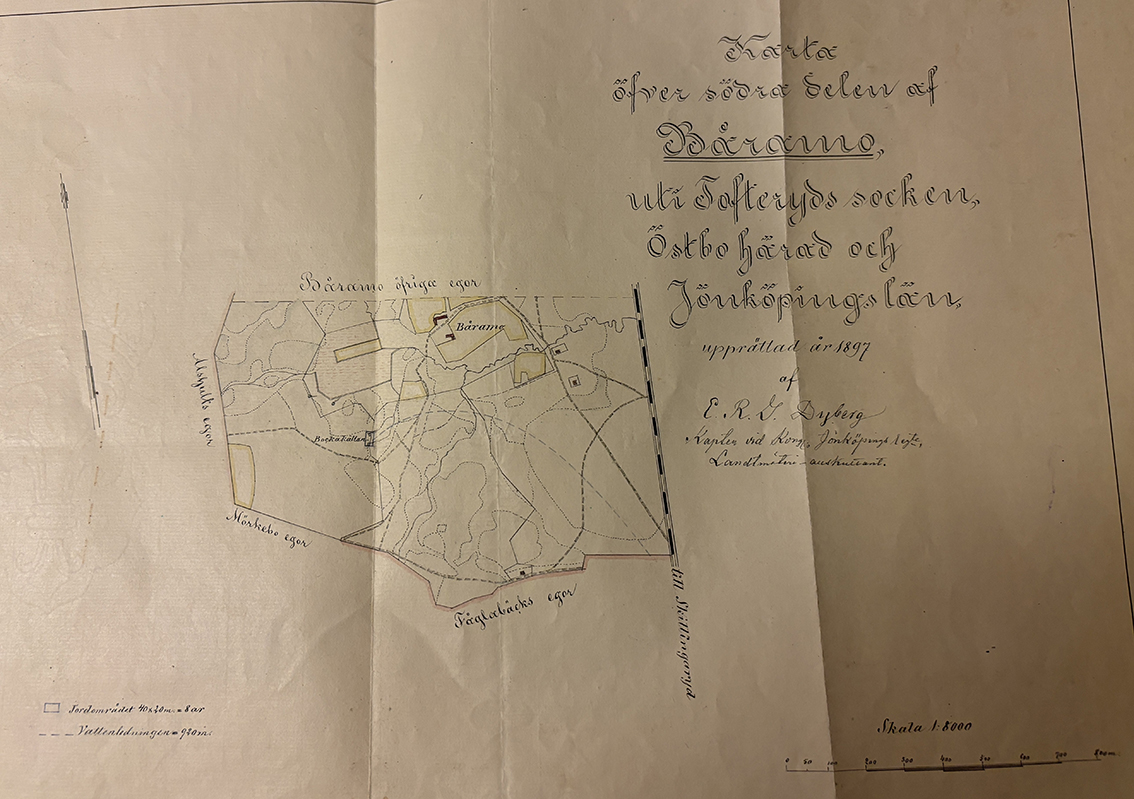 Karta
öfver södra delen af
Båramo,
uti Tofteryds socken,
Östbo härad och
Jönköpings län,
upprättad år 1897
af
E. R. G. Dyberg
Kapten vid Kongl. Jönköpings regte,
Landtmäteri-auskultant.
Båramo öfriga egor
Båramo
egor
Bockakällan
Möskebo egor
Fåglabäcks egor
till Skillingaryd
Jordområdet 40x20m. = 8 ar
Vattenledningen = 920 m.
Skala 1:8000
0 50 100 200 300 400 500 600 700 800 m.